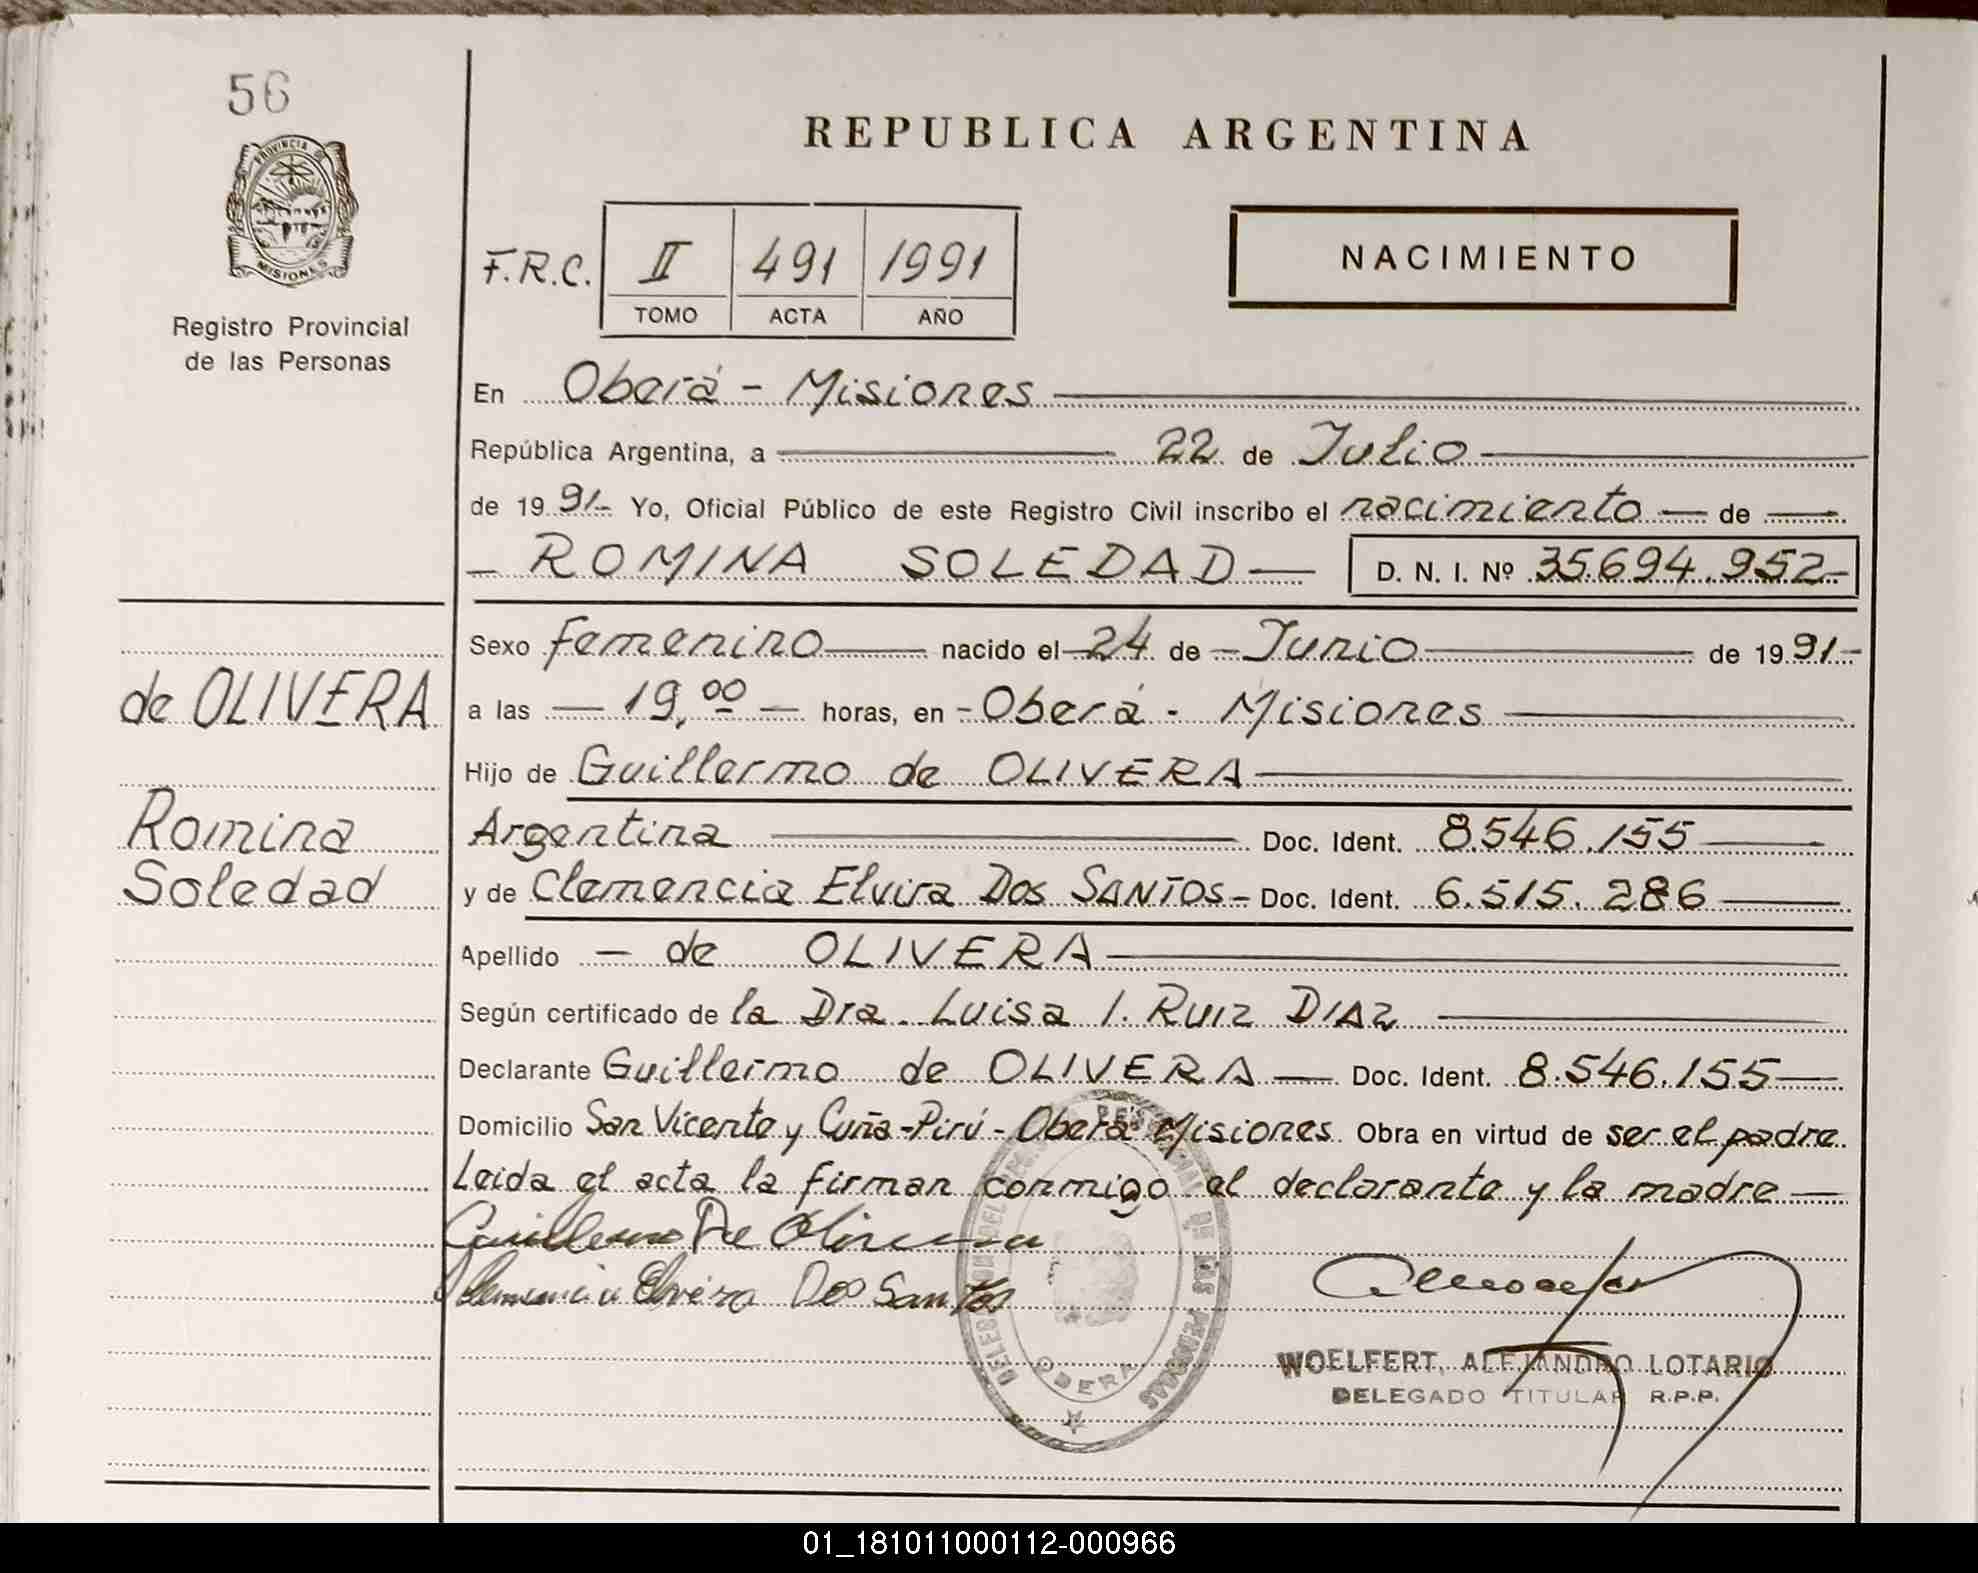 56
PROVINCIA D
MISIONES
Registro Provincial
de las Personas
REPUBLICA ARGENTINA
F.R.C. II 491 1991
TOMO ACTA AÑO
NACIMIENTO
En Oberá - Misiones
República Argentina, a 22 de Julio
de 1991- Yo, Oficial Público de este Registro Civil inscribo el nacimiento — de —
- ROMINA SOLEDAD — D. N. I. Nº 35.694.952-
Sexo femenino nacido el 24 de Junio de 1991-
de OLIVERA
a las — 19,00 — horas, en - Oberá - Misiones
Hijo de Guillermo de OLIVERA
Romina
Argentina Doc. Ident. 8.546.155
Soledad
y de Clemencia Elvira Dos SANTOS - Doc. Ident. 6.515.286
Apellido — de OLIVERA
Según certificado de la Dra. Luisa I. Ruiz DIAZ
Declarante Guillermo de OLIVERA — Doc. Ident. 8.546.155
Domicilio San Vicente y Cuña-Pirú - Oberá Misiones. Obra en virtud de ser el padre.
Leida el acta la firman conmigo el declarante y la madre —
Guillermo De Olivera
Clemencia Elvira Dos Santos
DELEGACION DEL REGISTRO PROVINCIAL DE LAS PERSONAS
OBERA
WOELFERT, ALEJANDRO LOTARIO
DELEGADO TITULAR R.P.P.
01_181011000112-000966